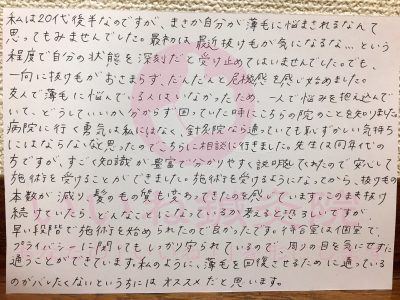 私は20代後半なのですが、まさか自分が薄毛に悩まされるなんて
思ってもみませんでした。最初は、最近抜け毛が気になるな…という
程度で自分の状態を深刻だと受け止めてはいませんでした。でも、
一向に抜け毛がおさまらず、だんだんと危機感を感じ始めました。
友人で薄毛に悩んでいる人はいなかったため、一人で悩みを抱え込んで
いて、どうしていいか分からず困っていた時にこちらの院のことを知りました。
病院に行く勇気は私にはなく、針灸院なら通っていても恥ずかしい気持ち
にはならないなと思ったのでこちらに相談に行きました。先生は同年代の
方ですが、すごく知識が豊富で分かりやすく説明してくれたので安心して
施術を受けることができました。施術を受けるようになってから、抜け毛の
本数が減り、髪の毛の質も変わってきたのを感じています。このまま抜け
続けていたら、どんなことになっているか考えると恐ろしいですが、
早い段階で施術を始められたので良かったです。待合室は個室で、
プライバシーに関してもしっかり守られているので、周りの目を気にせずに
通うことができています。私のように、薄毛を回復させるために通っている
のがバレたくないという方にはオススメだと思います。